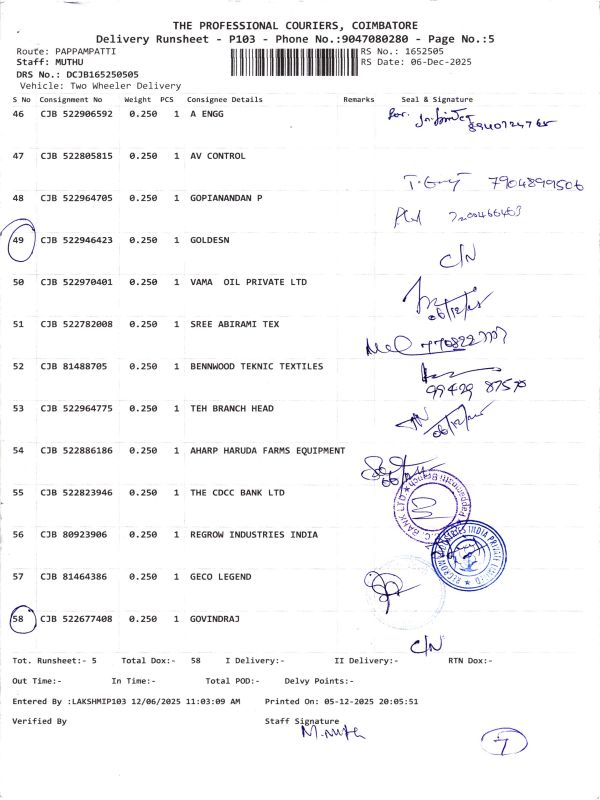 THE PROFESSIONAL COURIERS, COIMBATORE
Delivery Runsheet - P103 - Phone No.:9047080280 - Page No.:5
Route: PAPPAMPATTI RS No.: 1652505
Staff: MUTHU RS Date: 06-Dec-2025
DRS No.: DCJB165250505
Vehicle: Two Wheeler Delivery
S No Consignment No Weight PCS Consignee Details Remarks Seal & Signature
46 CJB 522906592 0.250 1 A ENGG
for.
47 CJB 522805815 0.250 1 AV CONTROL
7904899506
48 CJB 522964705 0.250 1 GOPIANANDAN P
49 CJB 522946423 0.250 1 GOLDESN
C/N
50 CJB 522970401 0.250 1 VAMA OIL PRIVATE LTD
06/12/25
51 CJB 522782008 0.250 1 SREE ABIRAMI TEX
52 CJB 81488705 0.250 1 BENNWOOD TEKNIC TEXTILES
53 CJB 522964775 0.250 1 TEH BRANCH HEAD
54 CJB 522886186 0.250 1 AHARP HARUDA FARMS EQUIPMENT
55 CJB 522823946 0.250 1 THE CDCC BANK LTD
56 CJB 80923906 0.250 1 REGROW INDUSTRIES INDIA
REGROW INDUSTRIES INDIA PRIVATE LIMITED
57 CJB 81464386 0.250 1 GECO LEGEND
58 CJB 522677408 0.250 1 GOVINDRAJ
C/N
Tot. Runsheet:- 5 Total Dox:- 58 I Delivery:- II Delivery:- RTN Dox:-
Out Time:- In Time:- Total POD:- Delvy Points:-
Entered By :LAKSHMIP103 12/06/2025 11:03:09 AM Printed On: 05-12-2025 20:05:51
Verified By Staff Signature
M.muth
7